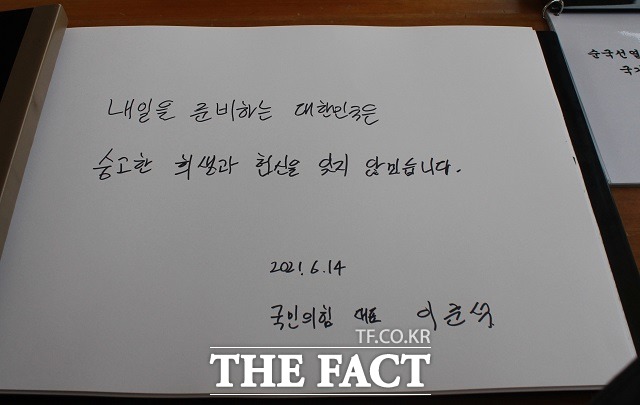 내일을 준비하는 대한민국은
숭고한 희생과 헌신을 잊지 않겠습니다.
2021. 6. 14
국민의힘 대표 이준석
순국선열
국가
TF.CO.KR
THE FACT